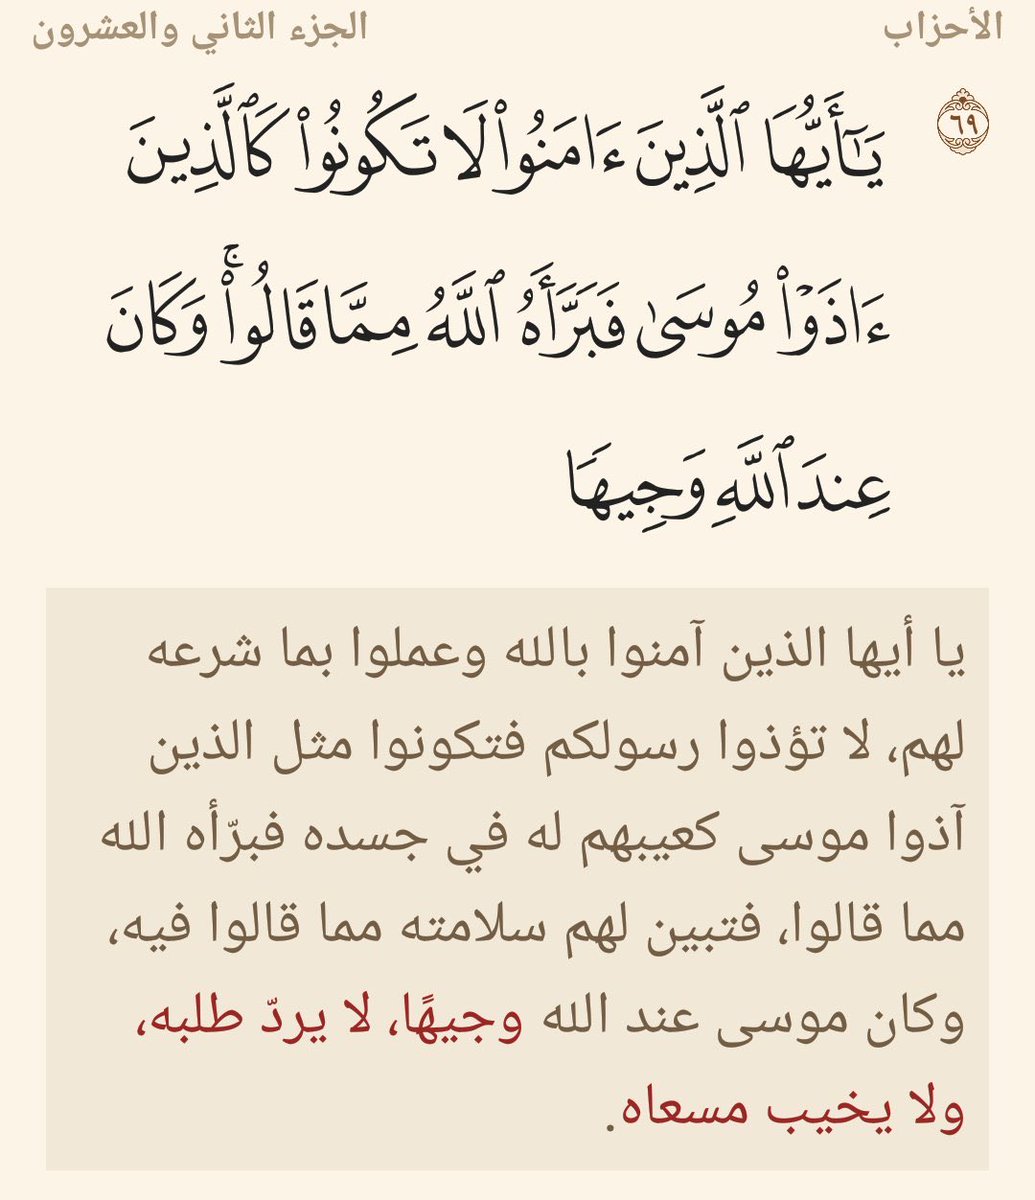 الأحزاب
الجزء الثاني والعشرون
٦٩
يَـٰٓأَيُّهَا ٱلَّذِينَ ءَامَنُوا۟ لَا تَكُونُوا۟ كَٱلَّذِينَ
ءَاذَوْا۟ مُوسَىٰ فَبَرَّأَهُ ٱللَّهُ مِمَّا قَالُوا۟ ۚ وَكَانَ
عِندَ ٱللَّهِ وَجِيهًا
يا أيها الذين آمنوا بالله وعملوا بما شرعه
لهم، لا تؤذوا رسولكم فتكونوا مثل الذين
آذوا موسى كعيبهم له في جسده فبرّأه الله
مما قالوا، فتبين لهم سلامته مما قالوا فيه،
وكان موسى عند الله وجيهًا، لا يردّ طلبه،
ولا يخيب مسعاه.